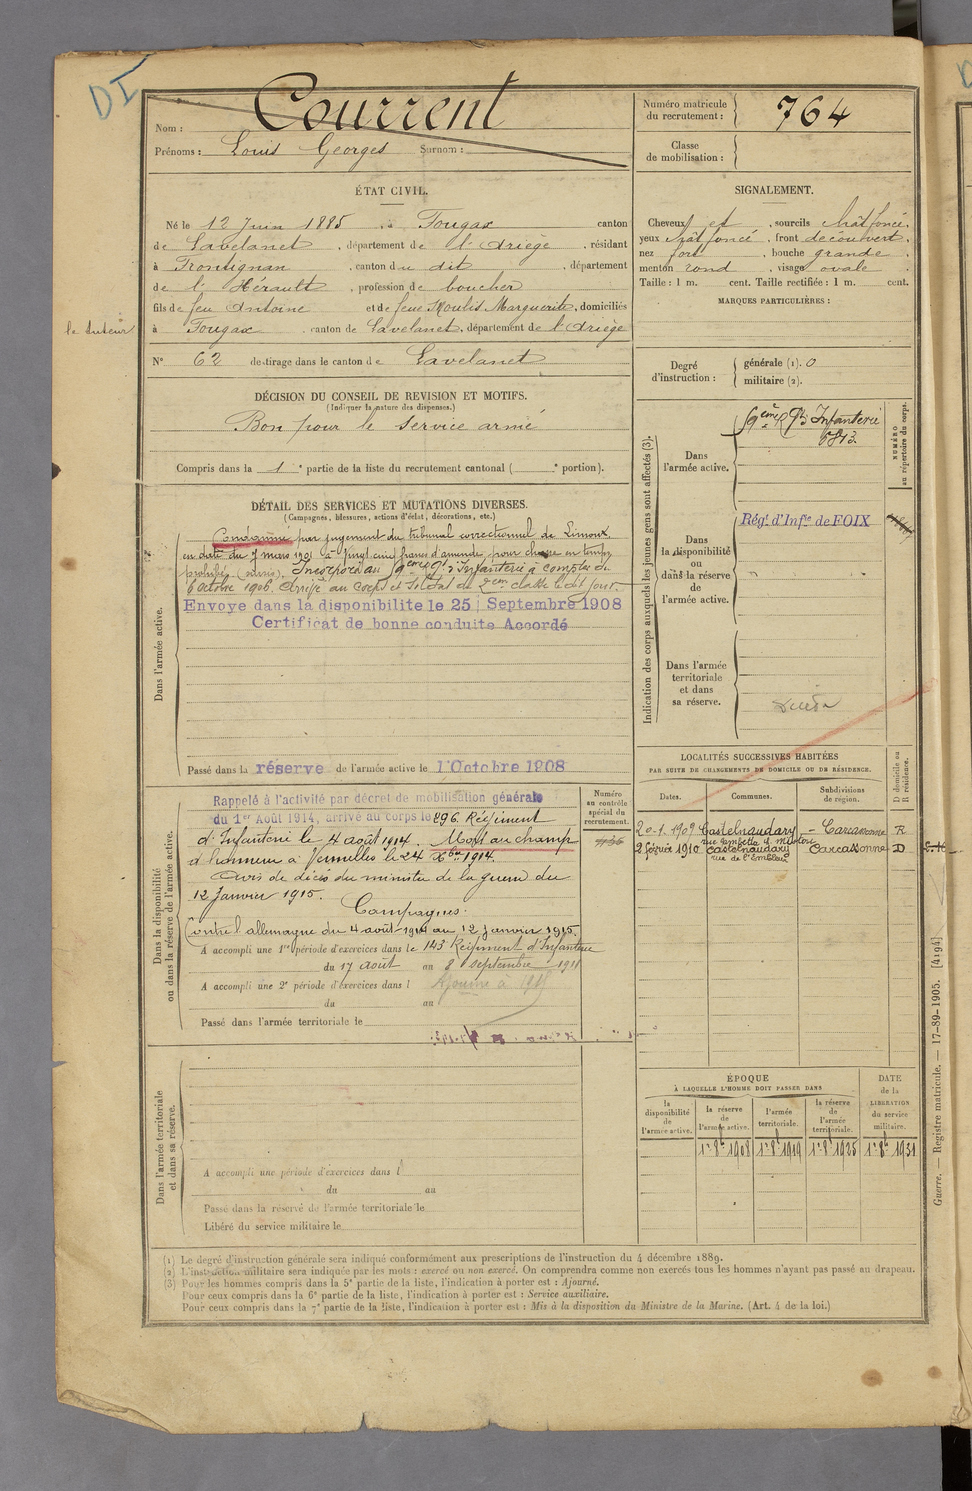 DI
Nom : Courrent
Prénoms : Louis Georges Surnom :
Numéro matricule du recrutement : 764
Classe de mobilisation :
ÉTAT CIVIL.
Né le 12 Juin 1885, à Fougax canton
de Lavelanet, département de l'Ariège, résidant
à Frontignan, canton du dit, département
de l'Hérault, profession de boucher
fils de feu Antoine et de feue Moulis Marguerite, domiciliés
le tuteur
à Fougax canton de Lavelanet, département de l'Ariège
N° 62 de tirage dans le canton de Lavelanet
SIGNALEMENT.
Cheveux et, sourcils chât foncé,
yeux chât foncé, front découvert,
nez fort, bouche grande,
menton rond, visage ovale.
Taille : 1 m. cent. Taille rectifiée : 1 m. cent.
MARQUES PARTICULIÈRES :
Degré d'instruction : générale (1). 0
militaire (2).
DÉCISION DU CONSEIL DE REVISION ET MOTIFS.
(Indiquer la nature des dispenses.)
Bon pour le service armé
Compris dans la 1e partie de la liste du recrutement cantonal ( e portion).
DÉTAIL DES SERVICES ET MUTATIONS DIVERSES.
(Campagnes, blessures, actions d'éclat, décorations, etc.)
Dans l'armée active.
Condamné par jugement du tribunal correctionnel de Limoux
en date du 7 mars 1901 à vingt cinq francs d'amende pour chasse en temps
prohibé. Incorporé au 9eme Rgt d'Infanterie à compter du
6 octobre 1906. Arrivé au corps et soldat de 2eme classe le dit jour.
Envoye dans la disponibilite le 25 Septembre 1908
Certificat de bonne conduite Accordé
Passé dans la réserve de l'armée active le 1 Octobre 1908
Dans la disponibilité ou dans la réserve de l'armée active.
Rappelé à l'activité par décret de mobilisation générale
du 1er Août 1914, arrivé au corps le 296 Régiment
d'Infanterie le 4 août 1914. Mort au champ
d'honneur à Vermelles le 24 Xbre 1914.
Avis de décès du ministre de la guerre du
12 Janvier 1915.
Campagnes.
Contre l'allemagne du 4 août 1914 au 12 janvier 1915.
A accompli une 1re période d'exercices dans le 143 Régiment d'Infanterie
du 17 août au 8 septembre 1911
A accompli une 2e période d'exercices dans l
Ajourné à 1915
du au
Passé dans l'armée territoriale le
Numéro au contrôle spécial du recrutement.
Dans l'armée territoriale et dans sa réserve.
A accompli une période d'exercices dans l
du au
Passé dans la réserve de l'armée territoriale le
Libéré du service militaire le
Indication des corps auxquels les jeunes gens sont affectés (3).
Dans l'armée active.
9eme Rgt d'Infanterie
NUMÉRO au répertoire du corps.
Dans la disponibilité ou dans la réserve de l'armée active.
Régt. d'Infie de FOIX
Dans l'armée territoriale et dans sa réserve.
LOCALITÉS SUCCESSIVES HABITÉES
PAR SUITE DE CHANGEMENTS DE DOMICILE OU DE RÉSIDENCE.
Dates. Communes. Subdivisions de région. D domicile ou R résidence.
20-1.1909 Castelnaudary Carcassonne R
rue Gambetta
2 février 1910 Castelnaudary Carcassonne D
ÉPOQUE
À LAQUELLE L'HOMME DOIT PASSER DANS
DATE de la LIBÉRATION du service militaire.
la disponibilité de l'armée active.
la réserve de l'armée active.
l'armée territoriale.
la réserve de l'armée territoriale.
1er 8bre 1908 1er 8bre 1919 1er 8bre 1925 1er 8bre 1931
(1) Le degré d'instruction générale sera indiqué conformément aux prescriptions de l'instruction du 4 décembre 1889.
(2) L'instruction militaire sera indiquée par les mots : exercé ou non exercé. On comprendra comme non exercés tous les hommes n'ayant pas passé au drapeau.
(3) Pour les hommes compris dans la 5e partie de la liste, l'indication à porter est : Ajourné.
Pour ceux compris dans la 6e partie de la liste, l'indication à porter est : Service auxiliaire.
Pour ceux compris dans la 7e partie de la liste, l'indication à porter est : Mis à la disposition du Ministre de la Marine. (Art. 4 de la loi.)
Guerre. — Registre matricule. — 17-89-1905. [4194]